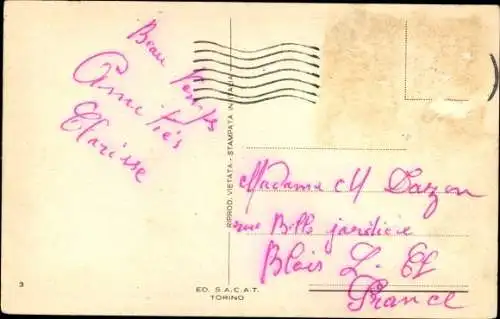 Beau temps
Amitiés
Clarisse
RIPROD. VIETATA - STAMPATA IN ITALIA
Madame M Darzon
rue Belle jardiniere
Blois L. et
France
3
ED. S.A.C.A.T.
TORINO